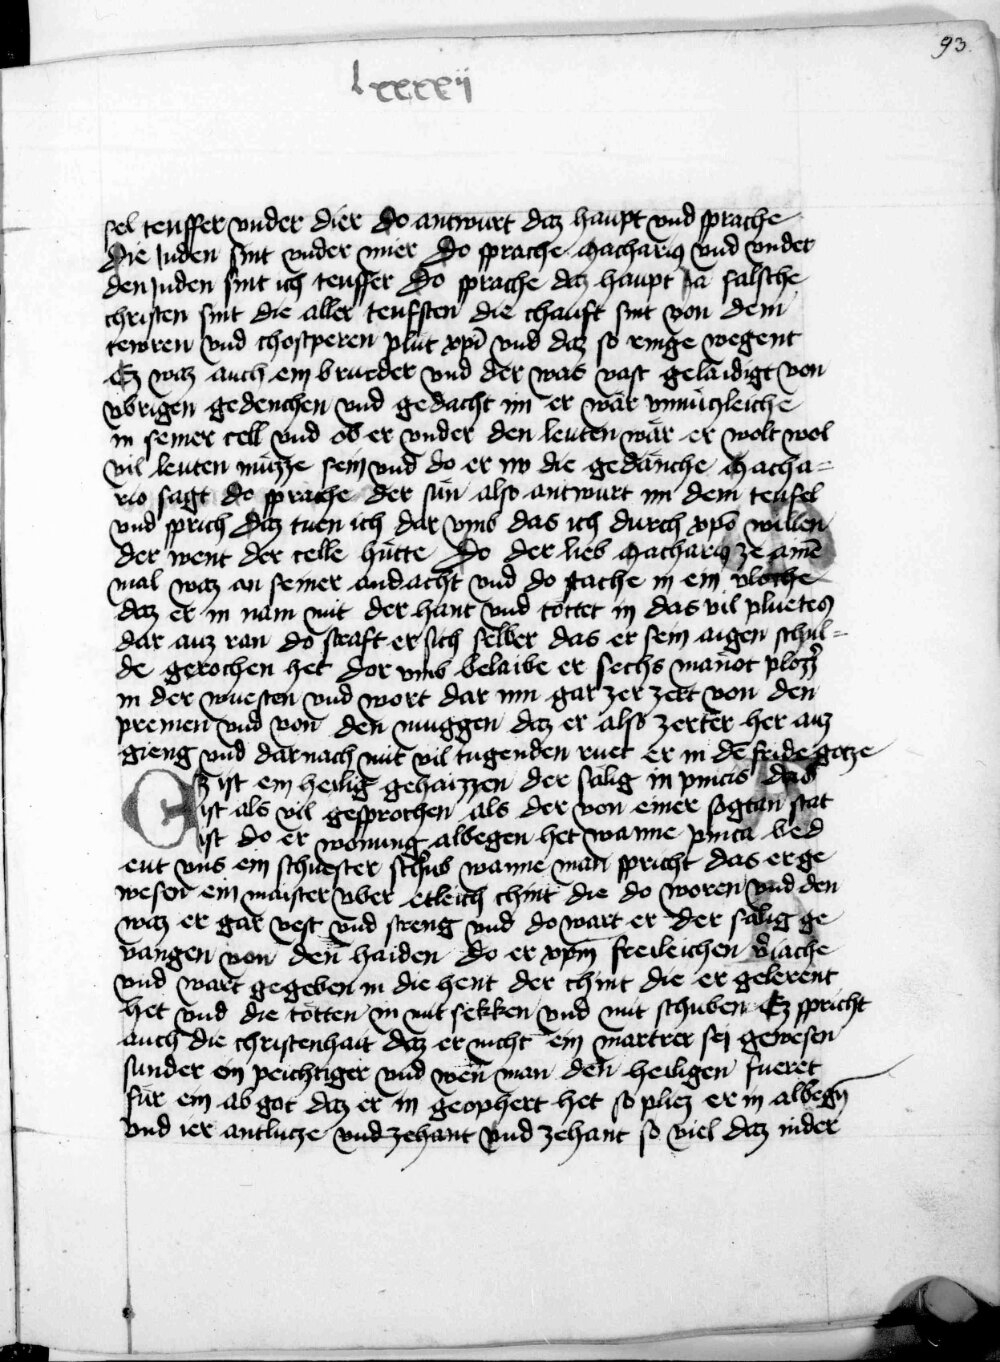 93.
lxxxxij
sel teuffer vnder dier Do antwurt daz haupt vnd sprache
Die Juden sint vnder mier Do sprache Machariꝰ vnd vnder
den Juden sint ich teuffer Do sprache daz haupt Ja falsche
christen sint die aller teufsten die chauft sint von dem
tewren vnd chostperen plut xp̄i vnd daz so ringe wegent
Ez waz auch ein brueder vnd der was vast gelaidigt von
vbrigen gedenchen vnd gedacht im er wär vnnuczleiche
in seiner cell vnd ob er vnder den leuten wär er wolt wol
vil leuten nüzze sein vnd do er nv die gedänche Macha=
rio sagt do sprache der sün also antwurt im dem teufel
vnd sprich daz tuen ich dar vmb das ich durch xp̄o willen
der went der celle hütte Do der lieb Machariꝰ ze aine̅
mal waz an seiner andacht vnd do stache in ein vloche
daz er in nam mit der hant vnd töttet in das vil pluetes
dar auz ran do straft er sich selber das er sein aigen schul=
de gerochen het dor vmb belaibe er sechs manot plozz̉
in der wuesten vnd wort dar inn gar zer zert von den
premen vnd von den muggen daz er also zerter her auz
gieng vnd darnach mit vil tugenden ruet er in de̅ fride gotze
Ez ist ein heilig gehaizzen der salig in pincis das
ist als vil gesprochen als der von einer sogtan stat
ist do er wonung albegen het wanne pinca bed
eut vns ein schuester schub wanne man spricht das er ge
wesen ein maister vber etleich chint die do woren vnd den
waz er gar vest vnd streng vnd do wart er der salig ge
vangen von den haiden do er xp̄m freileichen v̉iache
vnd wart gegeben in die hent der chint die er gelerent
het vnd die tötten in mit sekken vnd mit schuben Ez spricht
auch die christenhait daz er nicht ein martrer sej gewesen
sunder ein peichtiger vnd wen man den heiligen fueret
für ein ab got daz er in geophert het so pliez er in albegn̄
vnd ier antlucze vnd zehant vnd zehant so viel daz nider